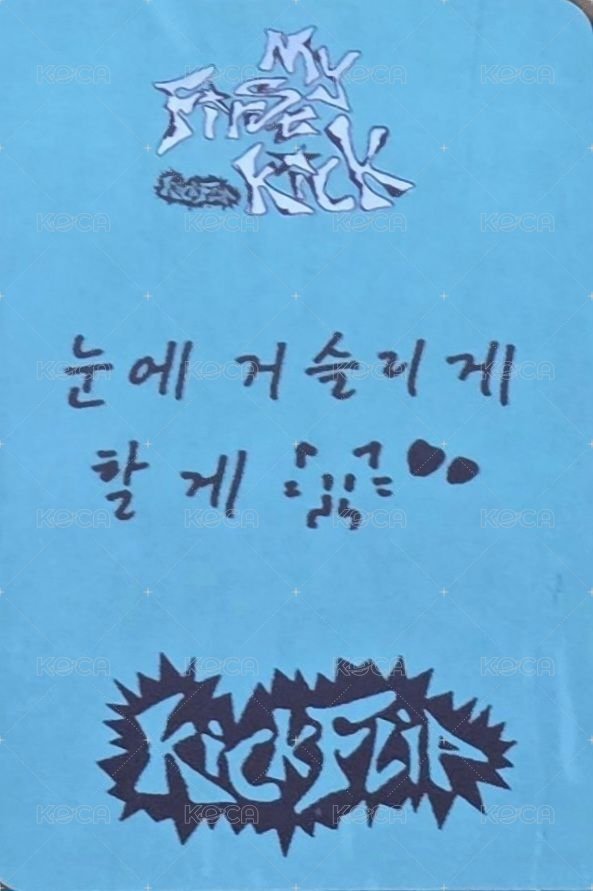 My
First
Kick
KickFlip
눈에 거슬리게
할게
KickFlip
KOCA